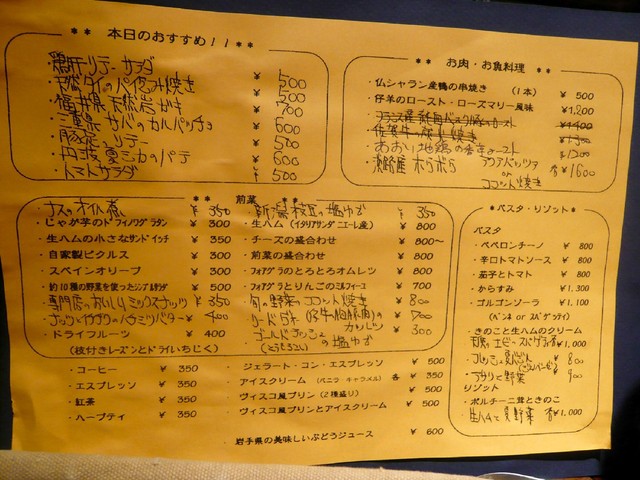 ** 本日のおすすめ!! **
サラダ ¥ 500
天然ダイのパイ包み焼き ¥ 500
福井県 天然岩ガキ ¥ 700
三重県 サバのカルパッチョ ¥ 600
¥ 500
のパテ ¥ 600
トマトサラダ ¥ 500
** お肉・お魚料理 **
・仏シャラン産鴨の串焼き (1本) ¥ 500
・仔羊のロースト・ローズマリー風味 ¥1,200
¥1,400
¥1,300
・あおい地鶏の ロースト ¥1300
・淡路産 ホウボウ アクアパッツァ or ココット焼き 各¥1600
** 前菜 **
・ナスのオイル煮 ¥ 350
・じゃが芋のドフィノワグラタン ¥ 300
・生ハムの小さなサンドイッチ ¥ 350
・自家製ピクルス ¥ 300
・スペインオリーブ ¥ 300
・約10種の野菜を使ったシンプルサラダ ¥ 500
・専門店のおいしいミックスナッツ ¥ 350
・ナッツとイチジクのハチミツバター ¥ 400
・ドライフルーツ ¥ 400
(枝付きレーズンとドライいちじく)
・新潟 枝豆の塩ゆで ¥ 350
・生ハム (イタリアサンダニエーレ産) ¥ 800
・チーズの盛合わせ ¥ 800~
・前菜の盛合わせ ¥ 800
・フォアグラのとろとろオムレツ ¥ 800
・フォアグラとりんごのミルフィーユ ¥ 700
・旬の野菜のココット焼き ¥ 800
¥ 700
・ゴールドラッシュの塩ゆで ¥ 300
(とうもろこし)
・コーヒー ¥ 350
・エスプレッソ ¥ 350
・紅茶 ¥ 350
・ハーブティ ¥ 350
・ジェラート・コン・エスプレッソ ¥ 500
・アイスクリーム (バニラ・キャラメル) 各 ¥ 350
・ヴィスコ風プリン (2種盛り) ¥ 500
・ヴィスコ風プリンとアイスクリーム ¥ 500
・岩手県の美味しいぶどうジュース ¥ 600
* パスタ・リゾット *
パスタ
・ペペロンチーノ ¥ 800
・辛口トマトソース ¥ 800
・茄子とトマト ¥ 800
・からすみ ¥ 1,300
・ゴルゴンゾーラ ¥ 1,100
(ペンネ or スパゲッティ)
・きのこと生ハムのクリーム
¥1,000
¥ 800
・アサリと野菜 ¥ 900
リゾット
・ポルチーニ茸ときのこ
・生ハムと夏野菜 各¥1,000